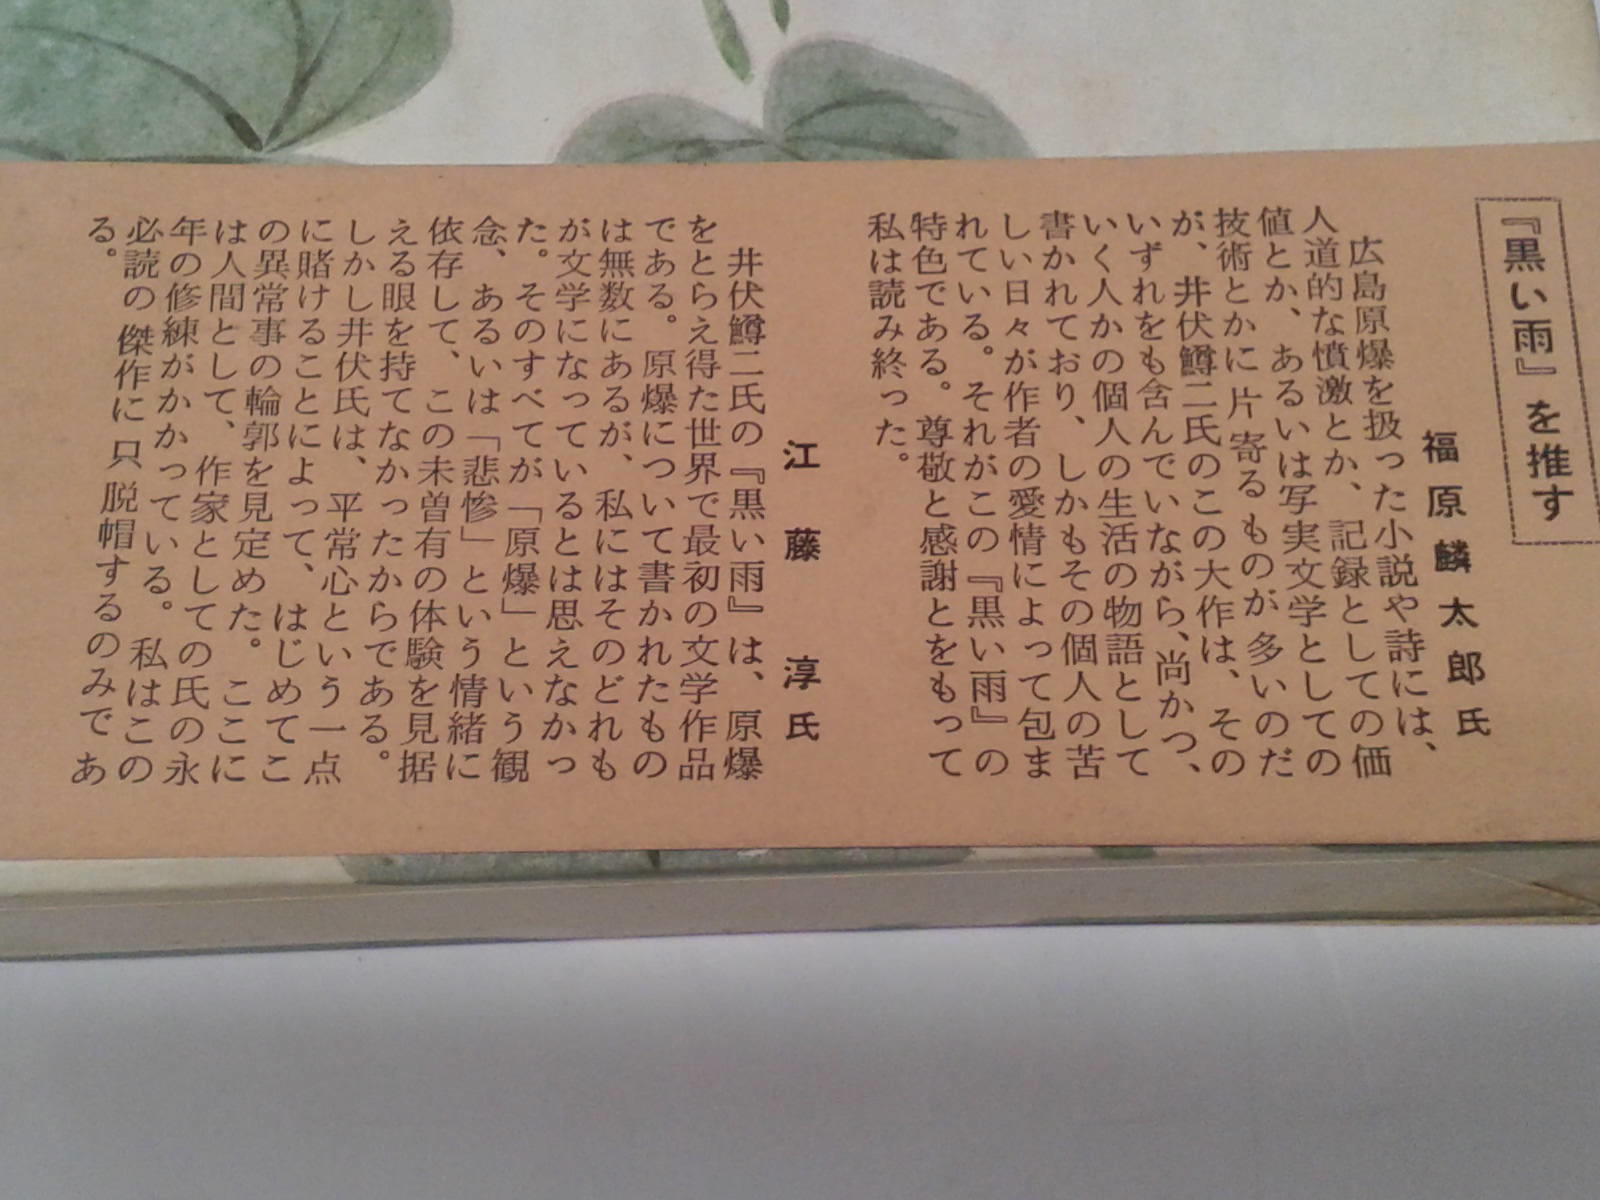 『黒い雨』を推す
福原麟太郎氏
広島原爆を扱った小説や詩には、
人道的な憤激とか、記録としての価
値とか、あるいは写実文学としての
技術とかに片寄るものが多いのだ
が、井伏鱒二氏のこの大作は、その
いずれをも含んでいながら、尚かつ、
いく人かの個人の生活の物語として
書かれており、しかもその個人の苦
しい日々が作者の愛情によって包ま
れている。それがこの『黒い雨』の
特色である。尊敬と感謝とをもって
私は読み終った。
江藤淳氏
井伏鱒二氏の『黒い雨』は、原爆
をとらえ得た世界で最初の文学作品
である。原爆について書かれたもの
は無数にあるが、私にはそのどれも
が文学になっているとは思えなかっ
た。そのすべてが「原爆」という観
念、あるいは「悲惨」という情緒に
依存して、この未曽有の体験を見据
える眼を持てなかったからである。
しかし井伏氏は、平常心という一点
に賭けることによって、はじめてこ
の異常事の輪郭を見定めた。ここに
は人間として、作家としての氏の永
年の修練がかかっている。私はこの
必読の傑作に只脱帽するのみであ
る。